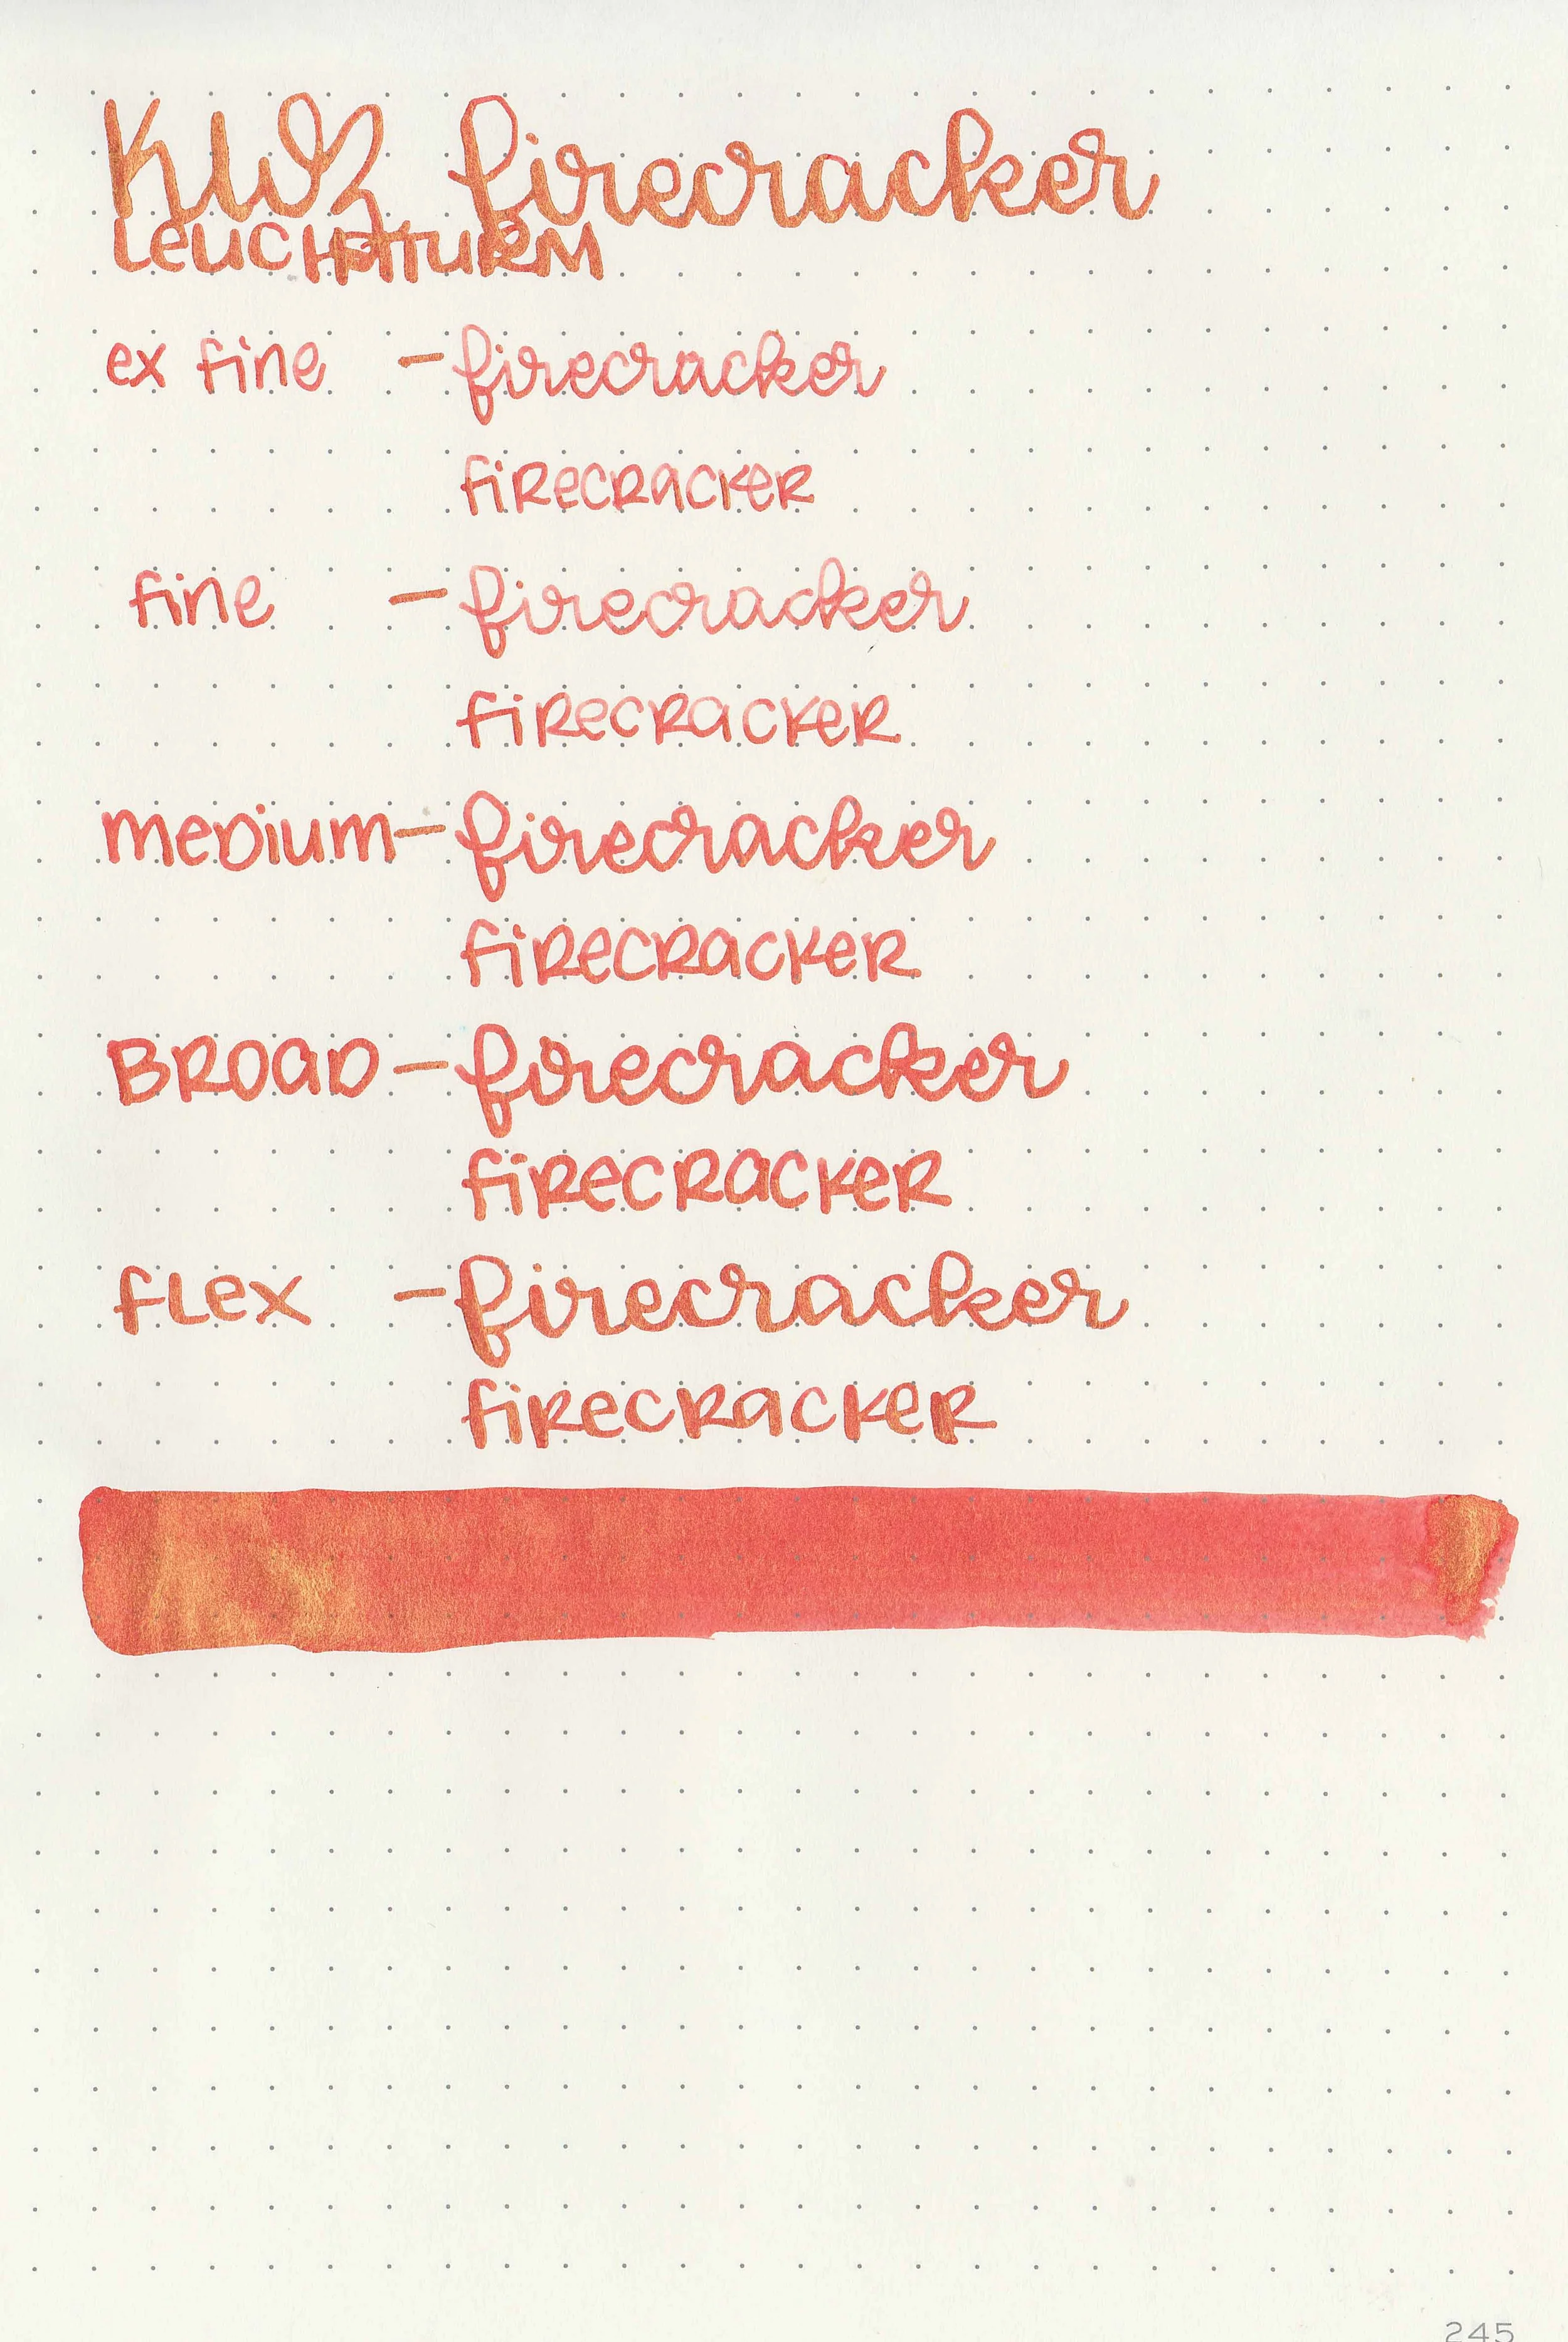 KWZ firecracker
LEUCHTTURM
ex fine - firecracker
firecracker
fine - firecracker
firecracker
medium - firecracker
firecracker
BROAD - firecracker
firecracker
flex - firecracker
firecracker
245